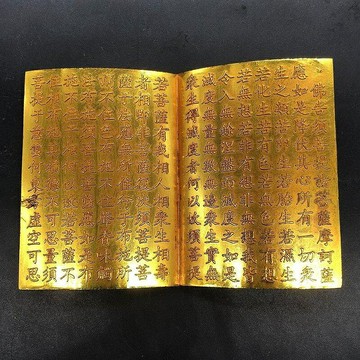 佛告須菩提諸菩薩摩訶薩
應如是降伏其心所有一切眾
生之類若卵生若胎生若濕生
若化生若有色若無色若有想
若無想若非有想非無想我皆
令入無餘涅槃而滅度之如是
滅度無量無數無邊眾生實無
眾生得滅度者何以故須菩提
若菩薩有我相人相眾生相壽
者相即非菩薩復次須菩提菩
薩於法應無所住行於布施所
謂不住色布施不住聲香味觸
法布施須菩提菩薩應如是布
施不住於相何以故若菩薩不
住相布施其福德不可思量須
菩提於意云何東方虛空可思